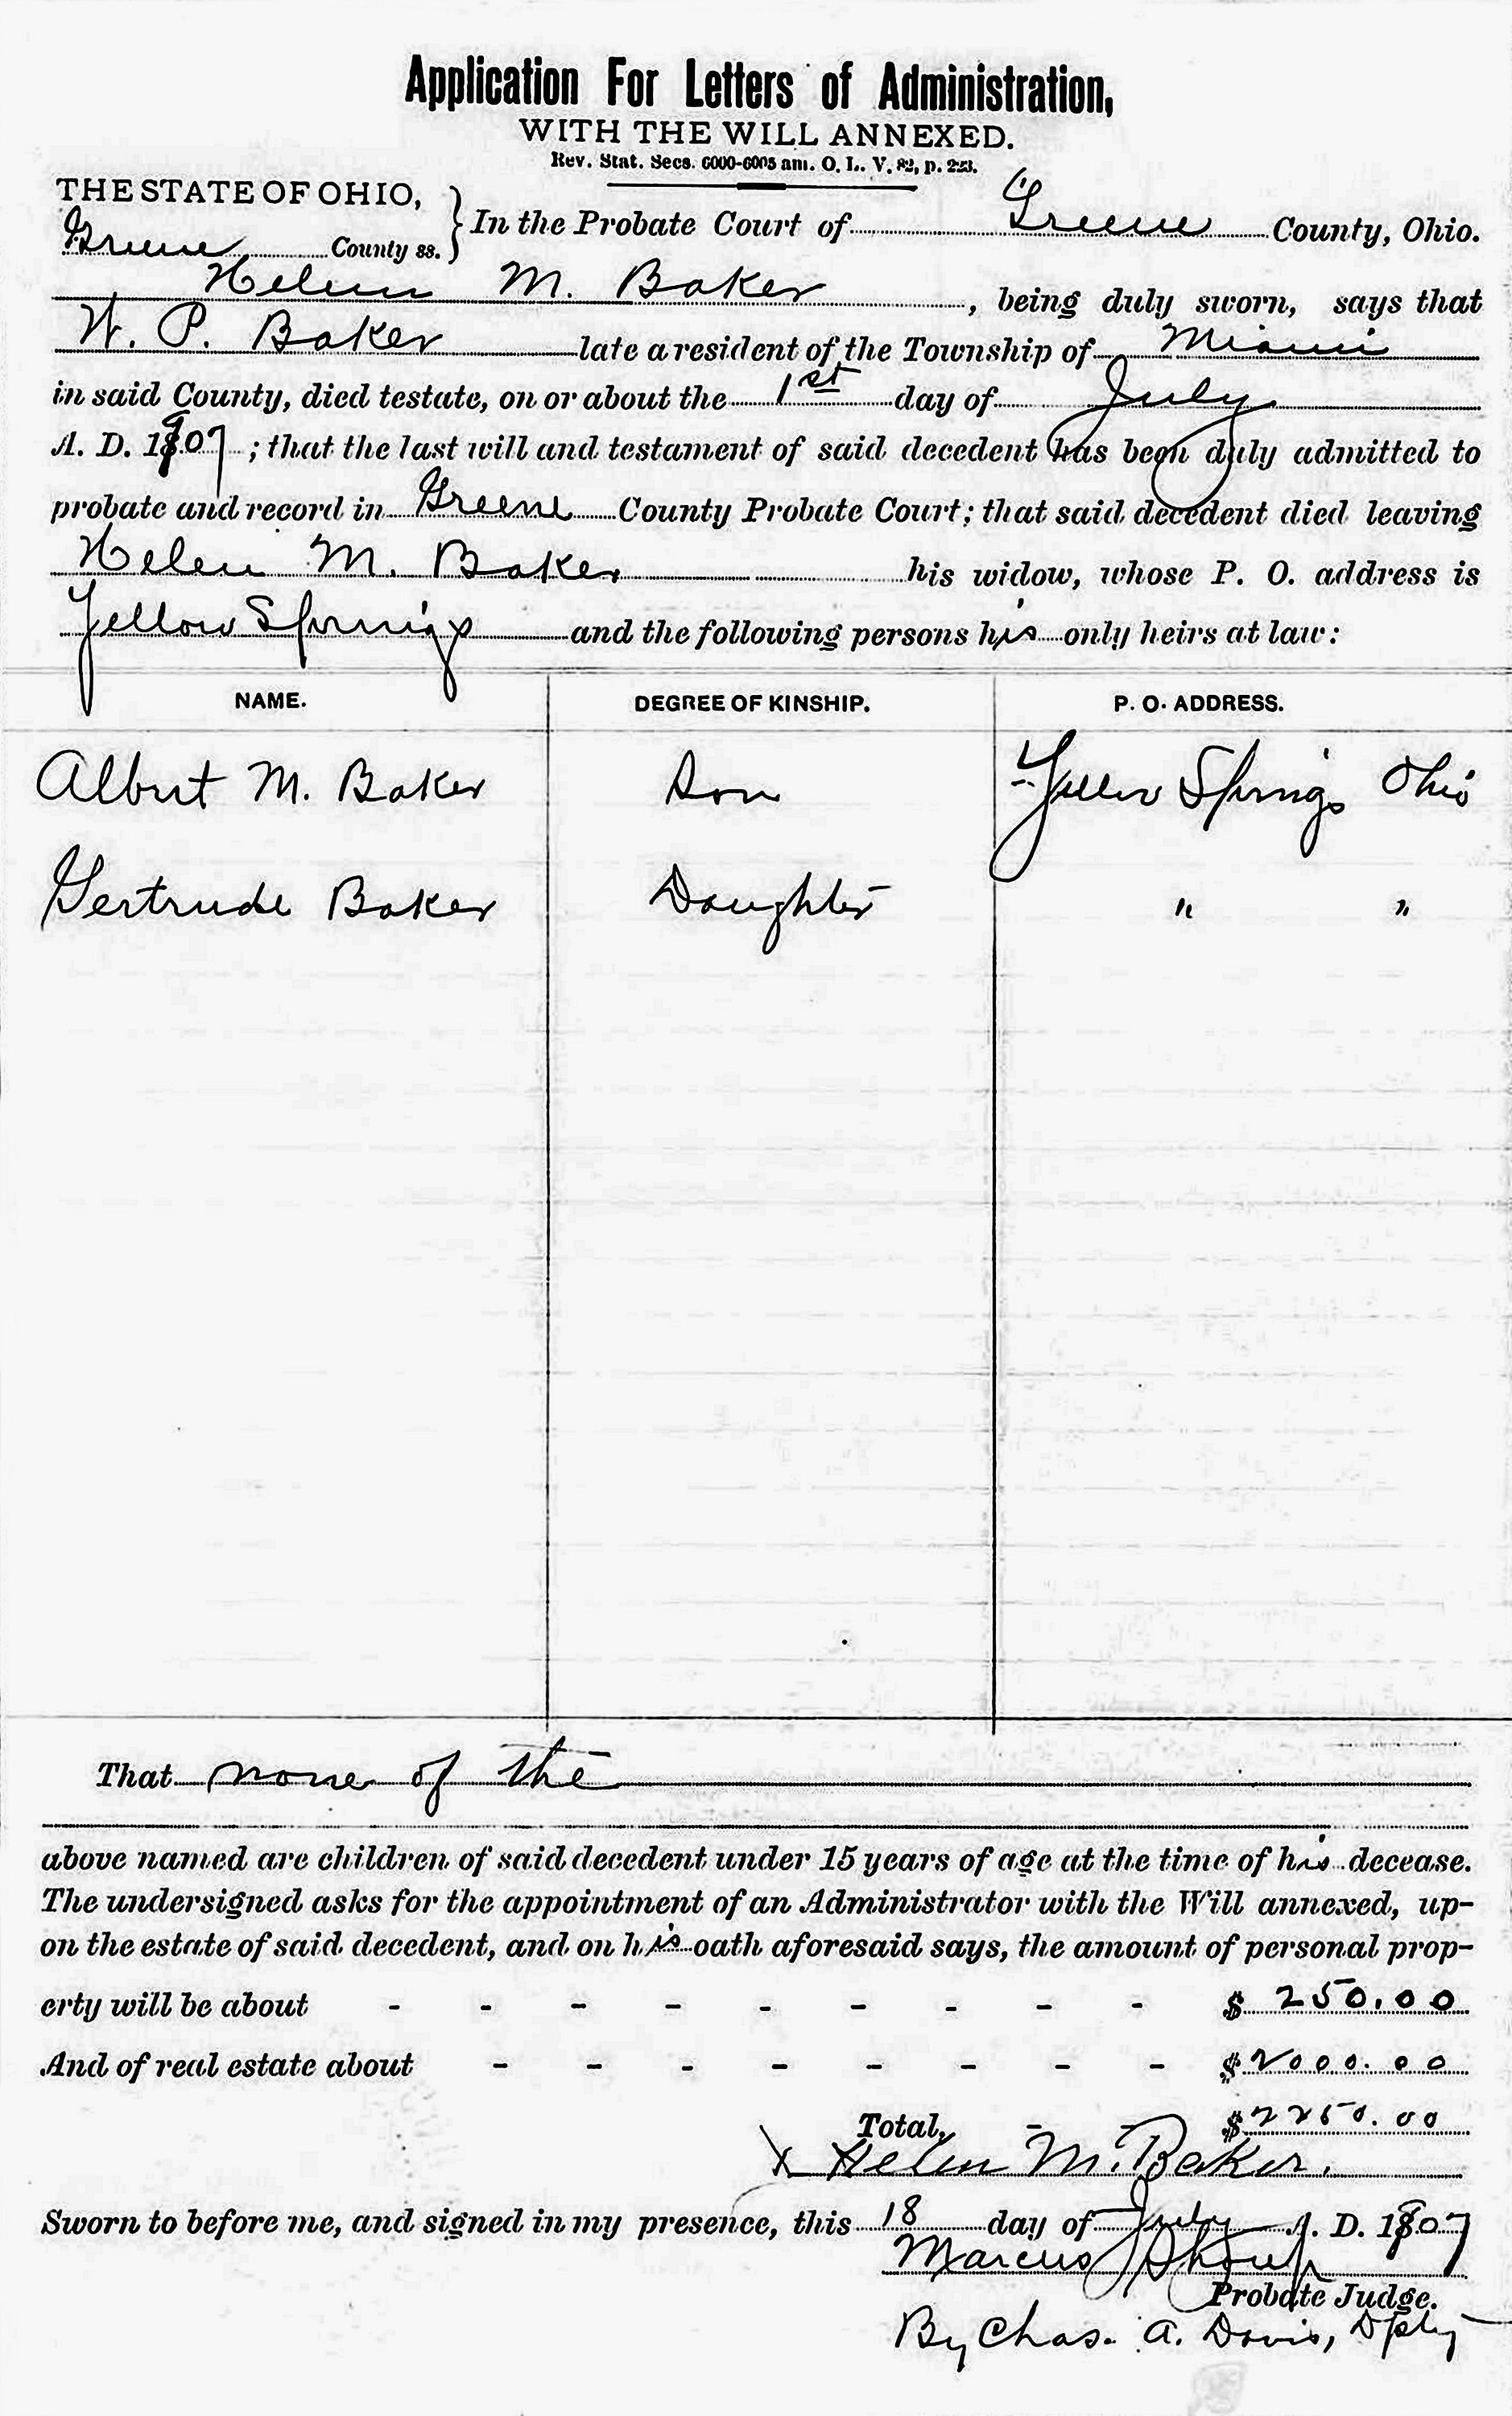 Application For Letters of Administration,
WITH THE WILL ANNEXED.
Rev. Stat. Secs. 6000-6005 am. O. L. V. 82, p. 223.
THE STATE OF OHIO,
Greene County ss. } In the Probate Court of Greene County, Ohio.
Helen M. Baker, being duly sworn, says that
W. P. Baker late a resident of the Township of Miami
in said County, died testate, on or about the 1st day of July
A. D. 1907; that the last will and testament of said decedent has been duly admitted to
probate and record in Greene County Probate Court; that said decedent died leaving
Helen M. Baker his widow, whose P. O. address is
Yellow Springs and the following persons his only heirs at law:
NAME. DEGREE OF KINSHIP. P. O. ADDRESS.
Albert M. Baker Son Yellow Springs Ohio
Gertrude Baker Daughter " "
That none of the
above named are children of said decedent under 15 years of age at the time of his decease.
The undersigned asks for the appointment of an Administrator with the Will annexed, up-
on the estate of said decedent, and on his oath aforesaid says, the amount of personal prop-
erty will be about - - - - - - - - - $ 250.00
And of real estate about - - - - - - - - $ 2000.00
Total, - - $ 2250.00
X Helen M. Baker.
Sworn to before me, and signed in my presence, this 18 day of July A. D. 1907
Marcus Shoup
Probate Judge.
By Chas. A. Davis, Dpty